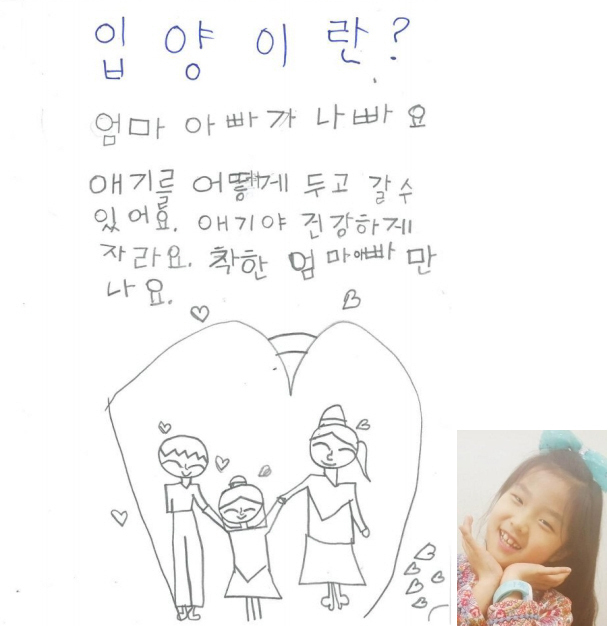 입양이란?
엄마 아빠가 나빠요
애기를 어떻게 두고 갈수
있어요. 애기야 건강하게
자라요. 착한 엄마아빠 만
나요.